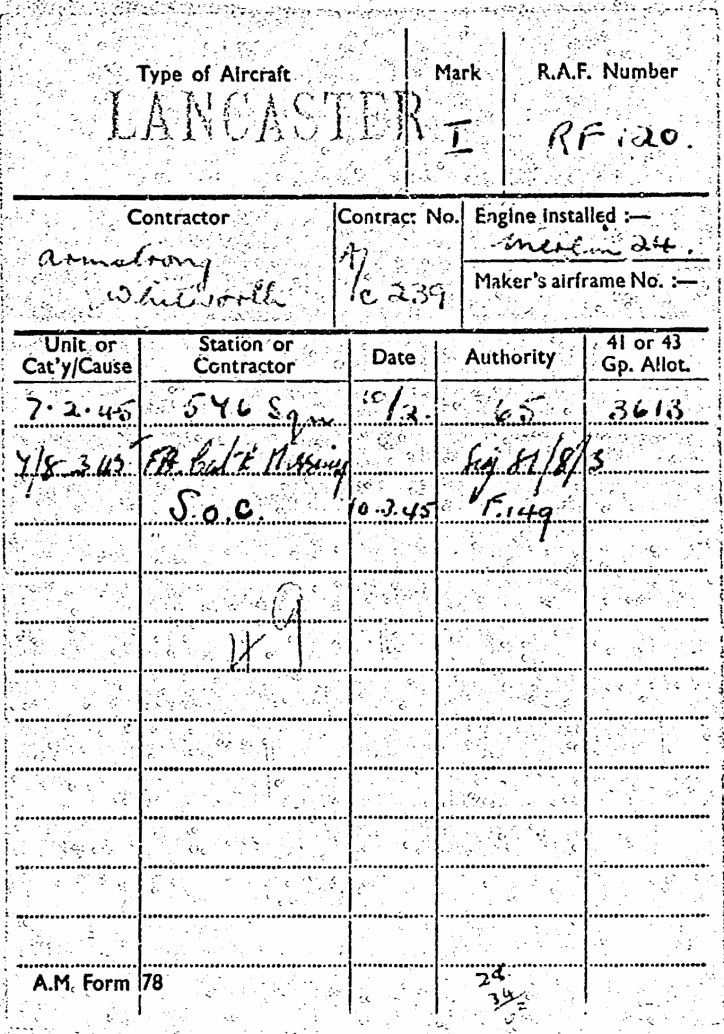 Type of Aircraft Mark R.A.F. Number
LANCASTER I RF 120.
Contractor Contract No. Engine Installed :—
Armstrong Whitworth A/c 239 Merlin 24.
Maker's airframe No. :—
Unit or Cat'y/Cause Station or Contractor Date Authority 41 or 43 Gp. Allot.
7.2.45 546 Sqn 10/2. 65 3613
7/8.3.45 FB Cat E Missing Sig 81/8/3
S.O.C. 10.3.45 F.149
A.M. Form 78
28
34